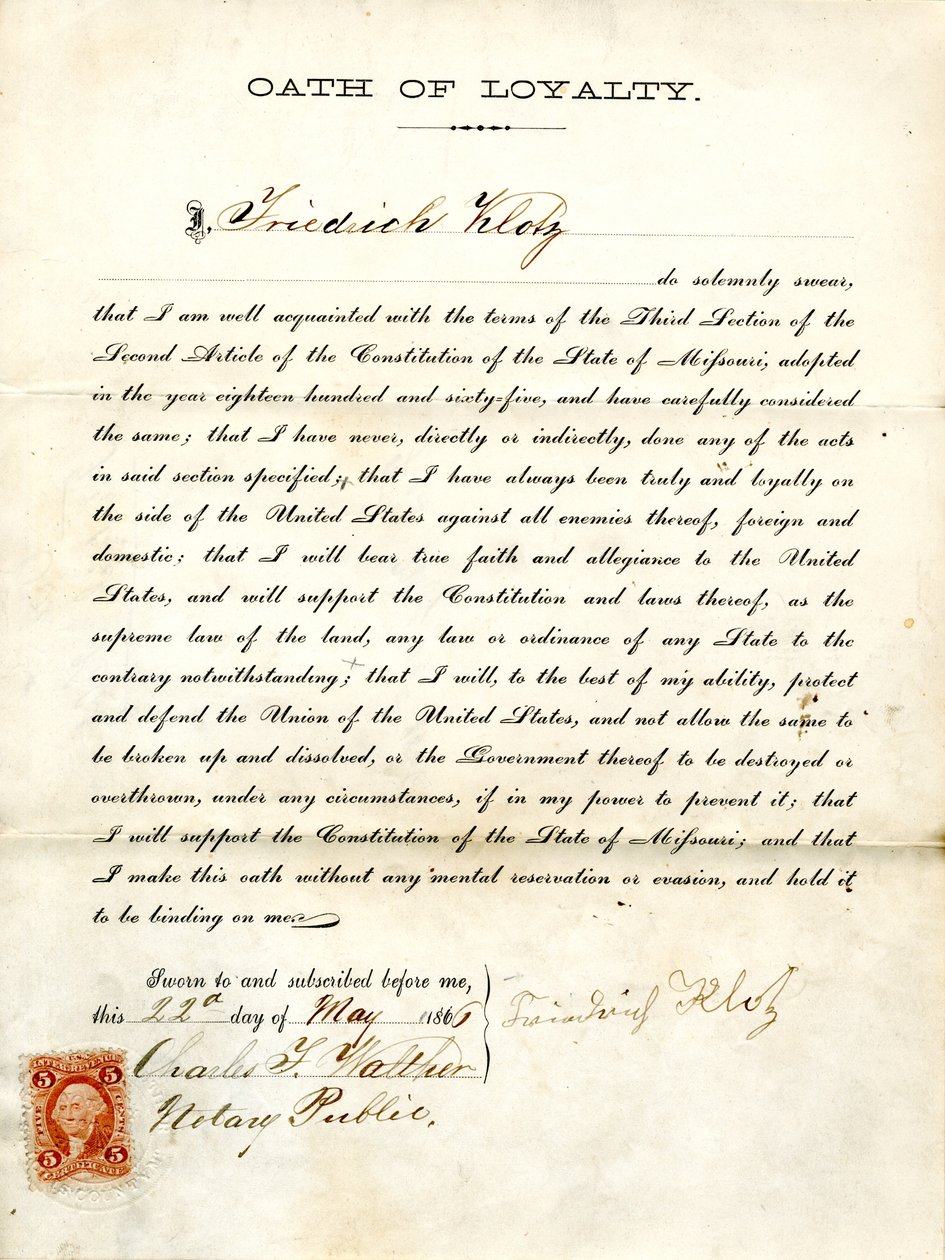 OATH OF LOYALTY.
I, Friedrich Klotz
do solemnly swear,
that I am well acquainted with the terms of the Third Section of the
Second Article of the Constitution of the State of Miſsouri, adopted
in the year eighteen hundred and sixty=five, and have carefully considered
the same; that I have never, directly or indirectly, done any of the acts
in said section specified; that I have always been truly and loyally on
the side of the United States against all enemies thereof, foreign and
domestic; that I will bear true faith and allegiance to the United
States, and will support the Constitution and laws thereof, as the
supreme law of the land, any law or ordinance of any State to the
contrary notwithstanding; that I will, to the best of my ability, protect
and defend the Union of the United States, and not allow the same to
be broken up and dissolved, or the Government thereof to be destroyed or
overthrown, under any circumstances, if in my power to prevent it; that
I will support the Constitution of the State of Miſsouri; and that
I make this oath without any mental reservation or evasion, and hold it
to be binding on me.
Sworn to and subscribed before me,
this 22d day of May 1866
Friedrich Klotz
Charles F. Walther
Notary Public.
U.S.
INTER. REVENUE
5 5
FIVE CENTS
5 5
CERTIFICATE
COUNTY